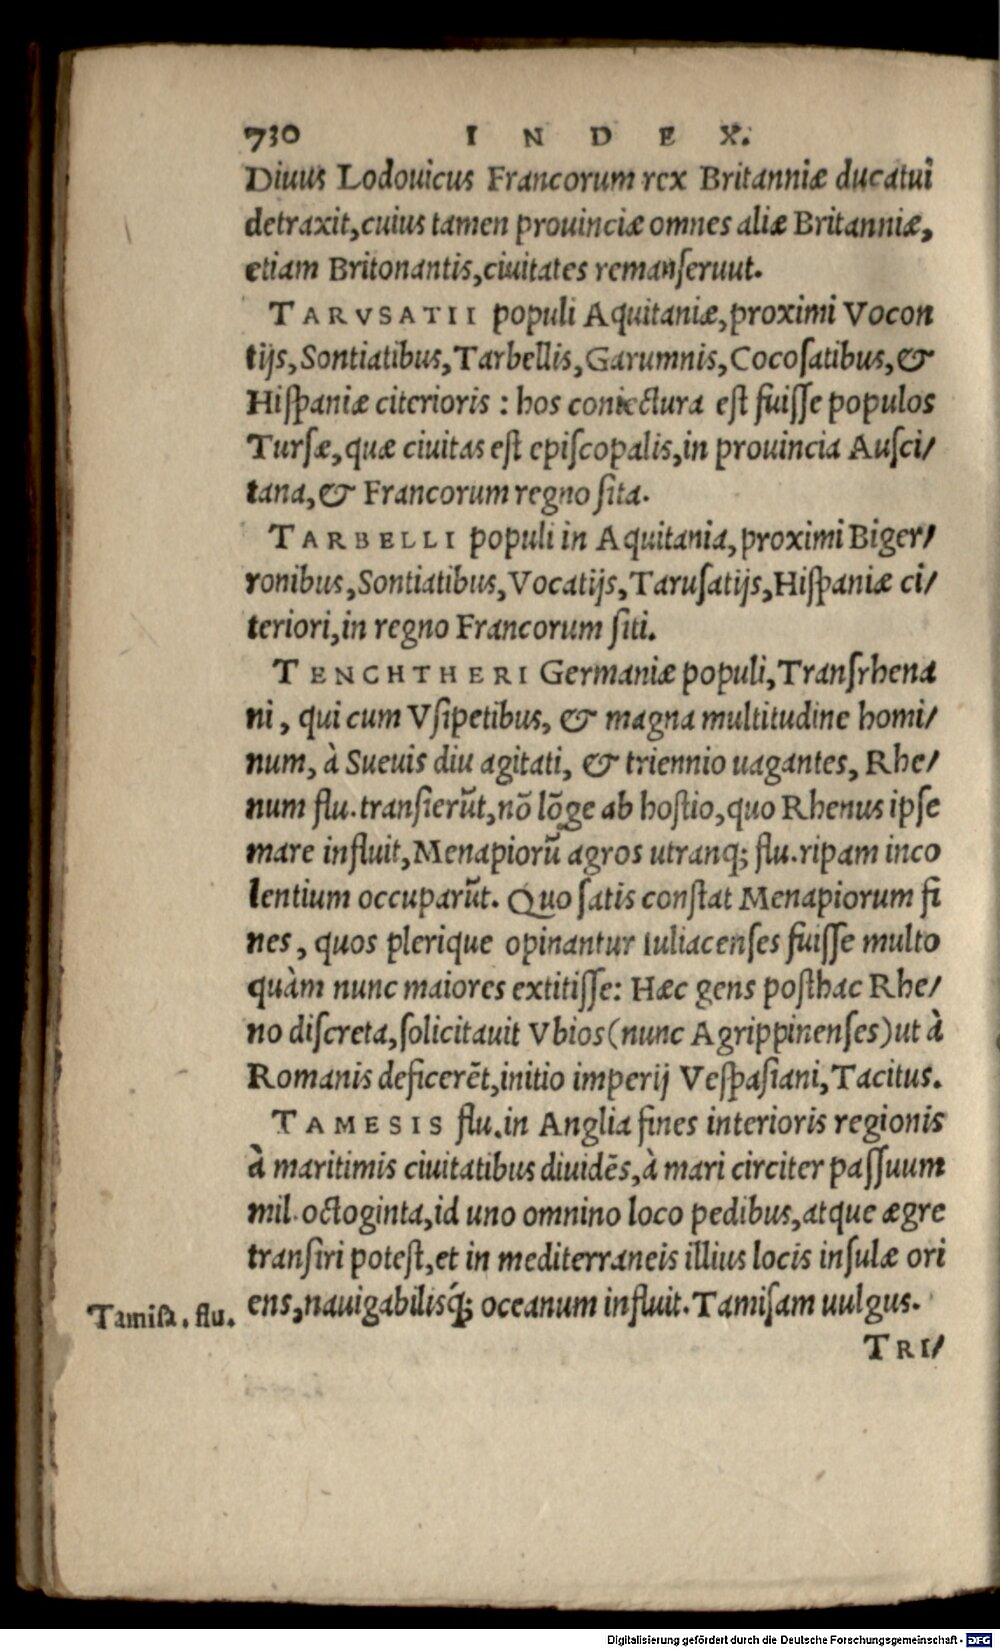 730 INDEX.
Diuus Lodouicus Francorum rex Britanniæ ducatui
detraxit, cuius tamen prouinciæ omnes aliæ Britanniæ,
etiam Britonantis, ciuitates remanseruut.
TARVSATII populi Aquitaniæ, proximi Vocon
tijs, Sontiatibus, Tarbellis, Garumnis, Cocosatibus, &
Hispaniæ citerioris : hos coniectura est fuisse populos
Tursæ, quæ ciuitas est episcopalis, in prouincia Ausci/
tana, & Francorum regno sita.
TARBELLI populi in Aquitania, proximi Biger/
ronibus, Sontiatibus, Vocatijs, Tarusatijs, Hispaniæ ci/
teriori, in regno Francorum siti.
TENCHTHERI Germaniæ populi, Transrhena
ni, qui cum Vsipetibus, & magna multitudine homi/
num, à Sueuis diu agitati, & triennio uagantes, Rhe/
num flu. transierũt, nõ lõge ab hostio, quo Rhenus ipse
mare influit, Menapiorũ agros utranq; flu. ripam inco
lentium occuparũt. Quo satis constat Menapiorum fi
nes, quos plerique opinantur Iuliacenses fuisse multo
quàm nunc maiores extitisse: Hæc gens posthac Rhe/
no discreta, solicitauit Vbios (nunc Agrippinenses) ut à
Romanis deficerẽt, initio imperij Vespasiani, Tacitus.
TAMESIS flu. in Anglia fines interioris regionis
à maritimis ciuitatibus diuidẽs, à mari circiter passuum
mil. octoginta, id uno omnino loco pedibus, atque ægre
transiri potest, et in mediterraneis illius locis insulæ ori
ens, nauigabilisq́; oceanum influit. Tamisam uulgus.
Tamisa. flu.
TRI/
Digitalisierung gefördert durch die Deutsche Forschungsgemeinschaft - DFG